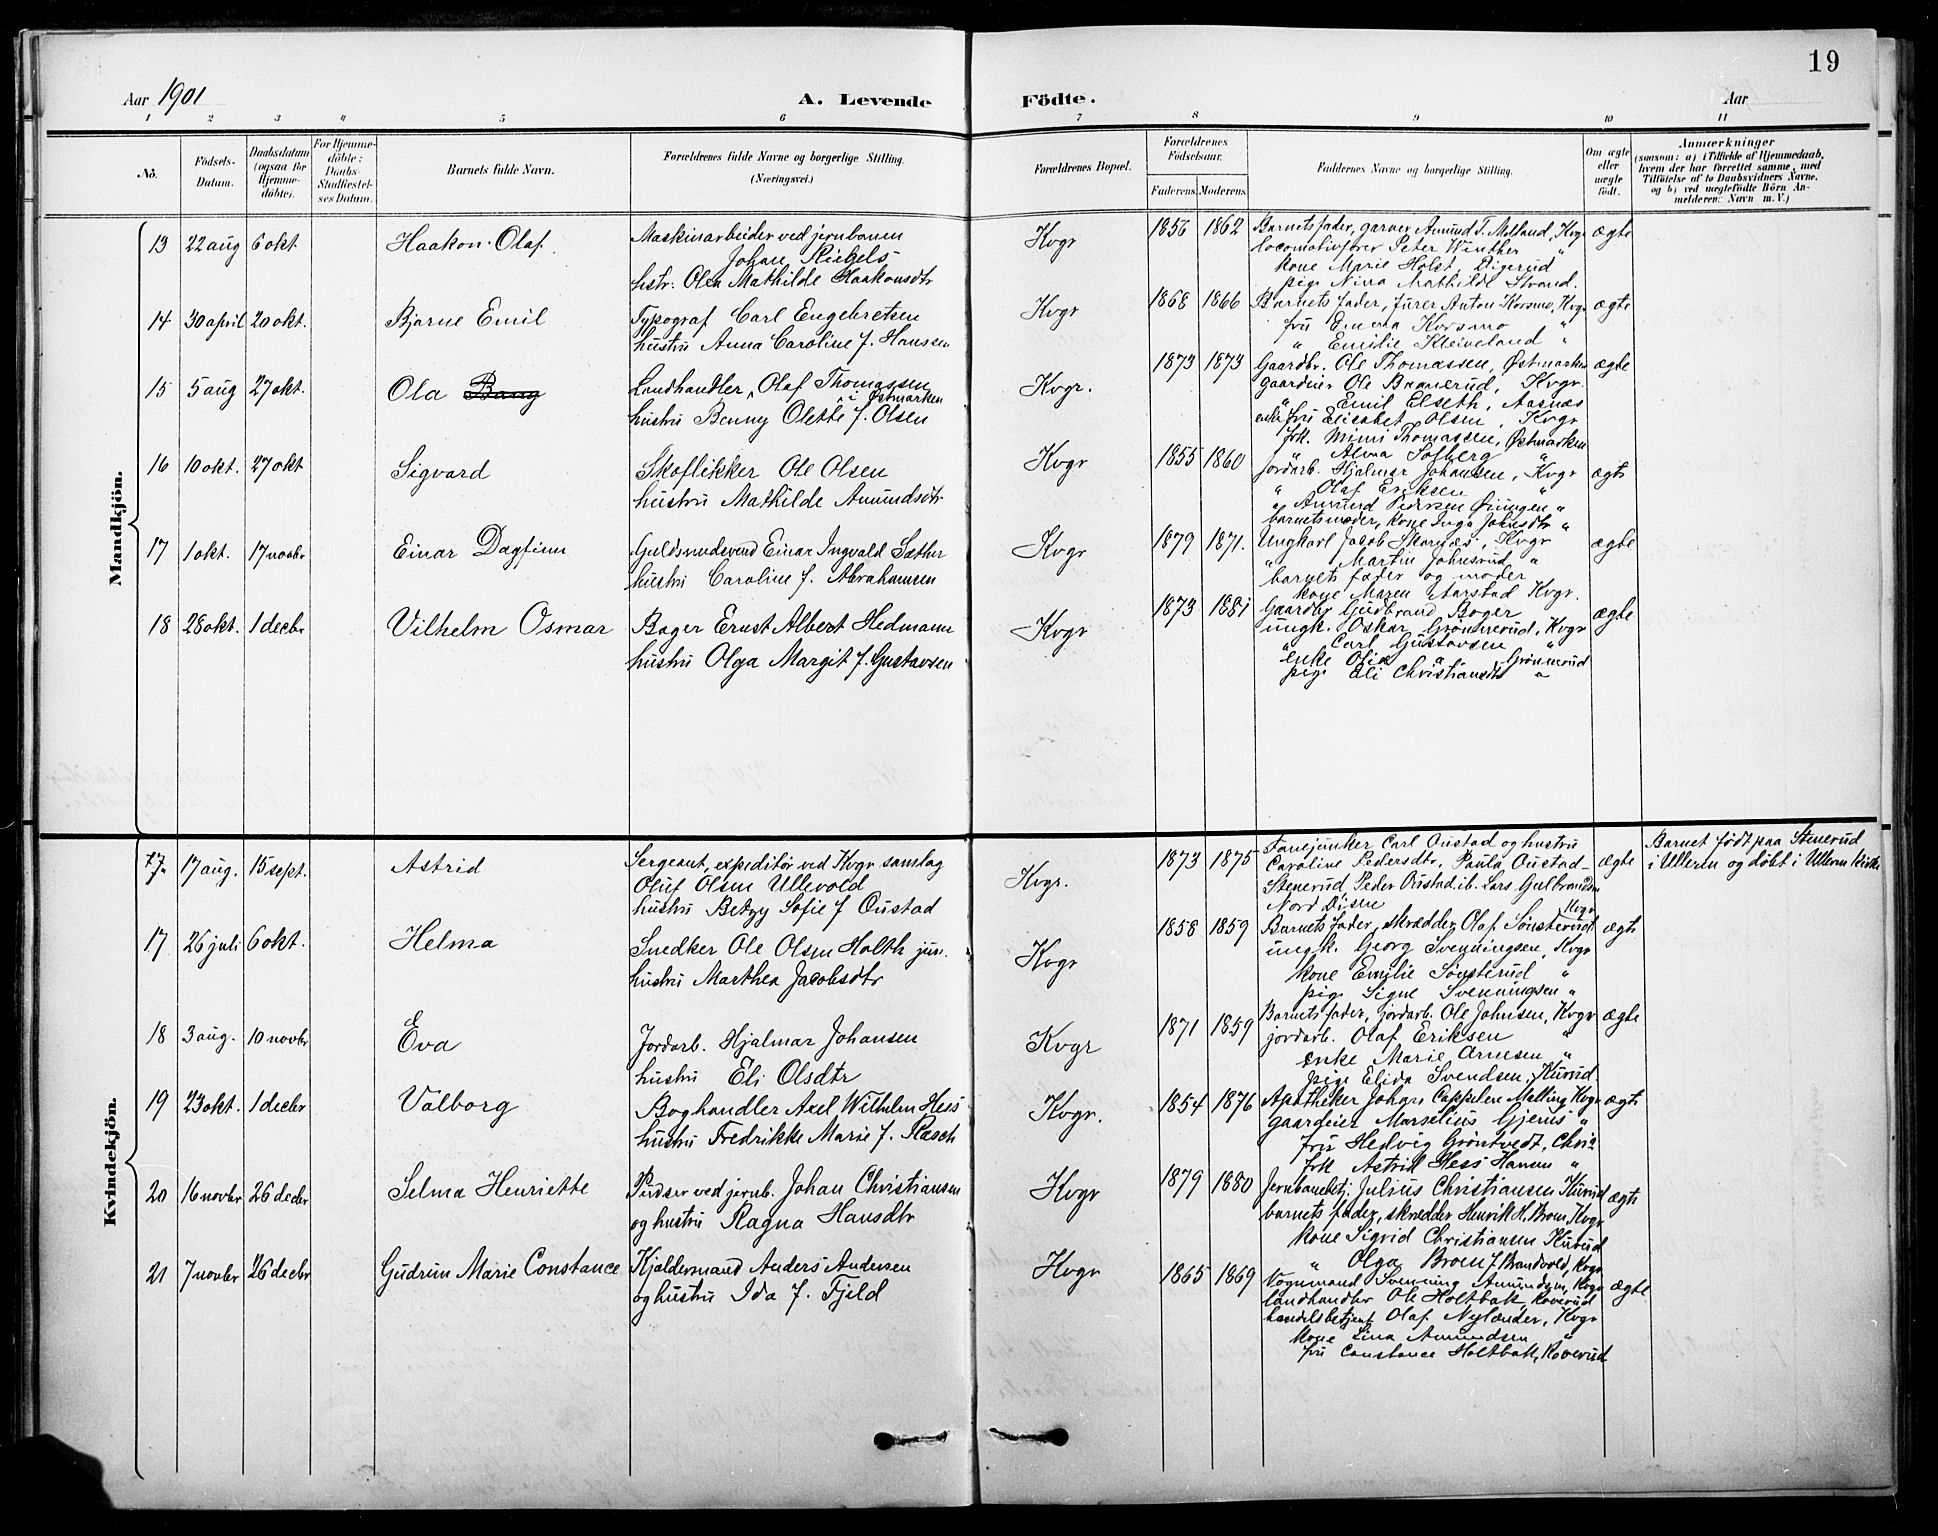 19
Aar 1901
A. Levende Födte.
Aar
1 2 3 4 5 6 7 8 9 10 11
No.
Födsels-Datum.
Daabsdatum (ogsaa for Hjemme-döbte).
For Hjemme-döbte: Daabs-Stadfæstel-ses Datum.
Barnets fulde Navn.
Forældrenes fulde Navne og borgerlige Stilling. (Næringsvei.)
Forældrenes Bopæl.
Forældrenes Födselsaar.
Faderens. Moderens.
Faddernes Navne og borgerlige Stilling.
Om ægte eller uægte født.
Anmærkninger
(saasom: a) i Tilfælde af Hjemmedaab, hvem der har forrettet samme, med Tilföielse af to Daabsvidners Navne, og b) ved uægtefödte Börn An-melderens Navn m. V.)
Mandkjön.
13 22 aug 6 okt Haakon Olaf.
Maskinarbeider ved jernbanen
Johan Riegels
hstr: Olea Mathilde Haakonsdtr
Kvgr 1856 1862
Barnets fader, garver Amund T. Melland, Kvgr
locomotivfører Peter Winther "
kone Marie Holst, Digerud
pige Nina Mathilde Strand.
ægte
14 30 april 20 okt. Bjarne Emil
Typograf Carl Engebretsen
hustru Anna Caroline f. Hanssen
Kvgr 1868 1866
Barnets fader, furer Anton Korsmo, Kvgr
fru Emma Korsmo "
" Emilie Kleiveland "
ægte
15 5 aug 27 okt. Ola Bang
Landhandler Olaf Thomassen
i Østmarken
hustru Benny Olette f. Olsen
Kvgr. 1873 1873
Gaardbr. Ole Thomassen, Østmarken
gaardeier Ole Branerud, Kvgr.
" Emil Elseth, Aasnæs
enkefru Elisabet Olsen, Kvgr
frk. Mimi Thomassen, Østmarken
" Alma Solberg "
ægte
16 10 okt. 27 okt Sigvard
Skoflikker Ole Olsen
hustru Mathilde Amundsdtr
Kvgr 1855 1860
Jordarb. Hjalmar Johansen, Kvgr
" Olaf Eriksen "
" Amund Pedersen Øiungen "
barnets moder, kone Inga Johnsdtr "
ægte
17 1 okt. 17 novbr Einar Dagfinn
Guldsmedsvend Einar Ingvald Sæther
hustru Caroline f. Abrahamsen
Kvgr 1879 1871.
Ungkarl Jacob Skarnæs, Kvgr
" Martin Johnsrud, "
barnets fader og moder
kone Maren Aarstad Kvgr.
ægte
18 28 okt. 1 decbr Vilhelm Osmar
Bager Ernst Albert Hedmann
hustru Olga Margit f. Gustavsen
Kvgr 1873 1881
Gaardbr Gudbrand Boger
ungk. Oskar Grønnerud, Kvgr
" Carl Gustavsen "
enke Olia " Grønnerud
pige Eli Christiansdtr "
ægte
Kvindekjön.
17. 17 aug. 15 sept. Astrid
Sergeant, expeditør ved Kvgr samlag
Oluf Olsen Ullevold
hustru Betzy Sofie f Oustad
Kvgr. 1873 1875
Fanejunker Carl Oustad og hustru
Caroline Pedersdtr, Paula Oustad
Stenerud, Peder Oustad ib. Lars Gulbrandsen
Nord Disen
ægte
Barnet født paa Stenerud
i Ulleren og døbt i Ullern kirke
17 26 juli 6 okt. Helma
Snedker Ole Olsen Holth jun.
hustru Marthea Jacobsdtr
Kvgr 1858 1859
Barnets fader, skrædder Olaf Sønsterud, Kvgr
ungk. Georg Svenningsen, Kvgr
kone Emilie Sønsterud "
pige Signe Svenningsen "
ægte
18 3 aug. 10 novbr Eva
Jordarb. Hjalmar Johansen
hustru Eli Olsdtr
Kvgr 1871 1859
Barnets fader, jordarb. Ole Johnsen, Kvgr
jordarb. Olaf Eriksen "
enke Marie Arnesen "
pige Elida Svendsen, Kurud.
ægte
19 23 okt. 1 decbr Valborg
Boghandler Axel Wilhelm Hess
hustru Fredrikke Marie f. Rasch
Kvgr. 1854 1876
Apotheker Johan Cappelen Malling Kvgr
gaardeier Marselius Gjems "
fru Hedvig Grøntvedt, Chria
frk Astrid Hess Hansen "
ægte
20 16 novbr 26 decbr Selma Henriette
Pudser ved jernb. Johan Christiansen
og hustru Ragna Hansdtr
Kvgr 1879 1880
Jernbanebetj. Julius Christiansen Kurud
barnets fader, skrædder Henrik H. Broen, Kvgr
kone Sigrid Christiansen Kurud
" Olga Broen f. Brandvold, Kvgr
ægte
21 7 novbr 26 decbr Gudrun Marie Constance
Kjældermand Anders Andersen
og hustru Ida f. Fjeld
Kvgr 1865 1869
Vognmand Svenning Amundsen, Kvgr
landhandler Ole Holtbak, Roverud
handelsbetjent Olaf Nylænder, Kvgr
kone Lina Amundsen "
fru Constance Holtbak, Roverud
ægte